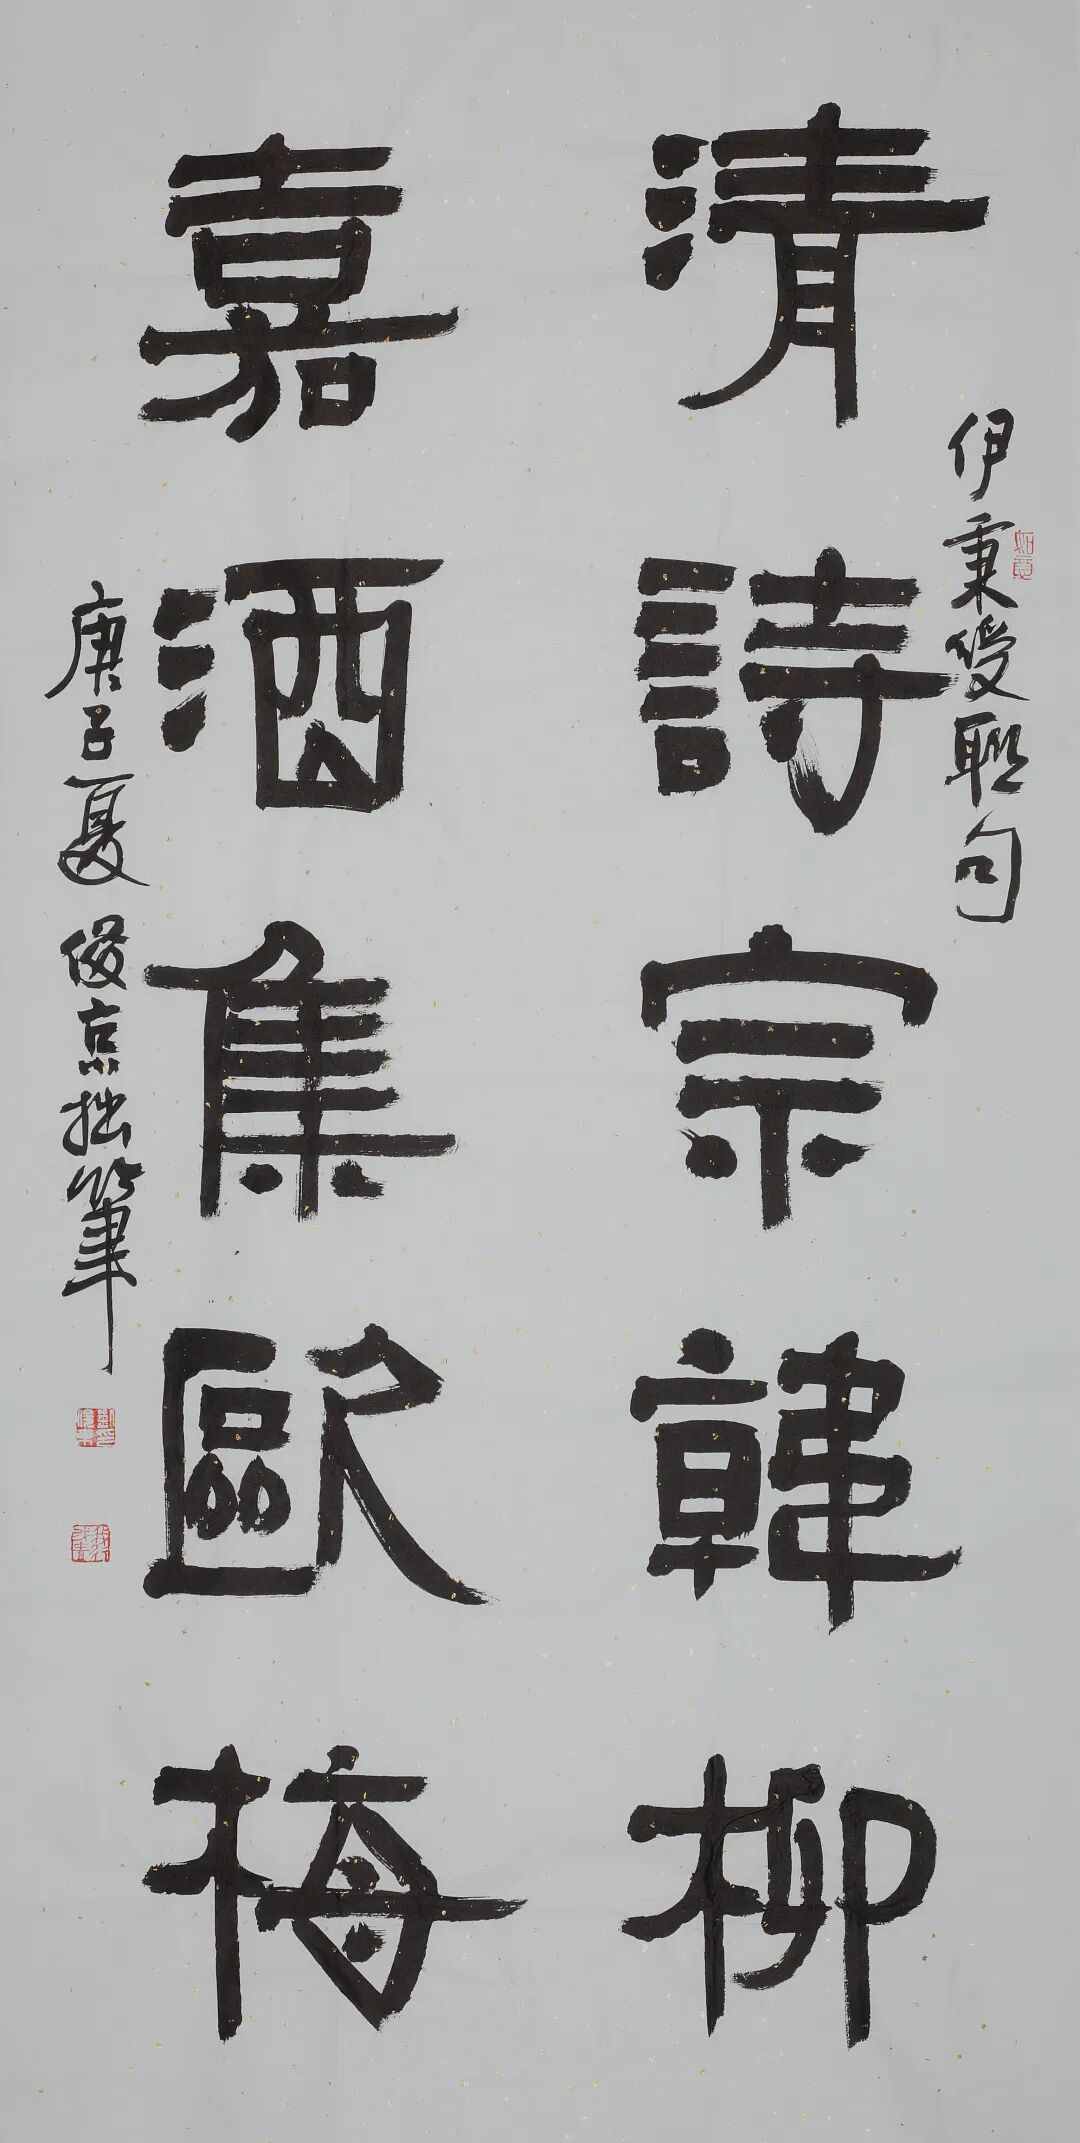 清詩宗韓柳
嘉酒集歐梅
伊秉绶联句
庚子夏俊京拙筆
如意